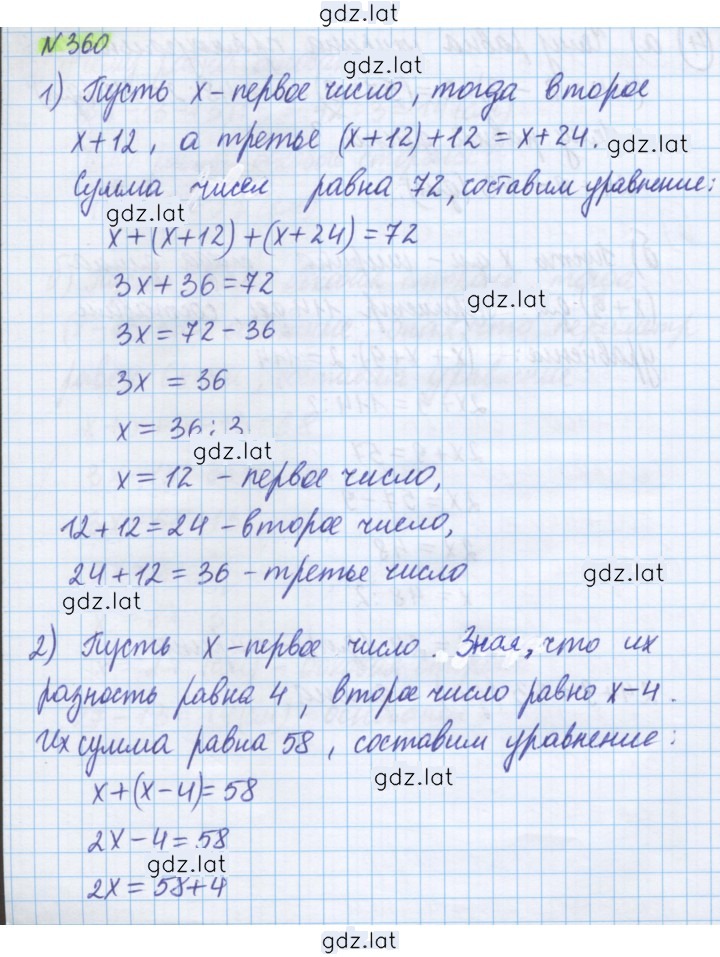 gdz.lat
N 360
gdz.lat
1) Пусть x - первое число, тогда второе
x+12, а третье (x+12)+12 = x+24.
gdz.lat
Сумма чисел равна 72, составим уравнение:
gdz.lat
x+(x+12)+(x+24)=72
3x+36=72
gdz.lat
3x=72-36
3x = 36
x = 36:3
gdz.lat
x=12 - первое число,
12+12=24 - второе число,
24+12=36 - третье число
gdz.lat
gdz.lat
2) Пусть x - первое число. Зная, что их
разность равна 4, второе число равно x-4.
Их сумма равна 58, составим уравнение:
gdz.lat
x+(x-4)=58
2x-4=58
gdz.lat
2x=58+4
gdz.lat